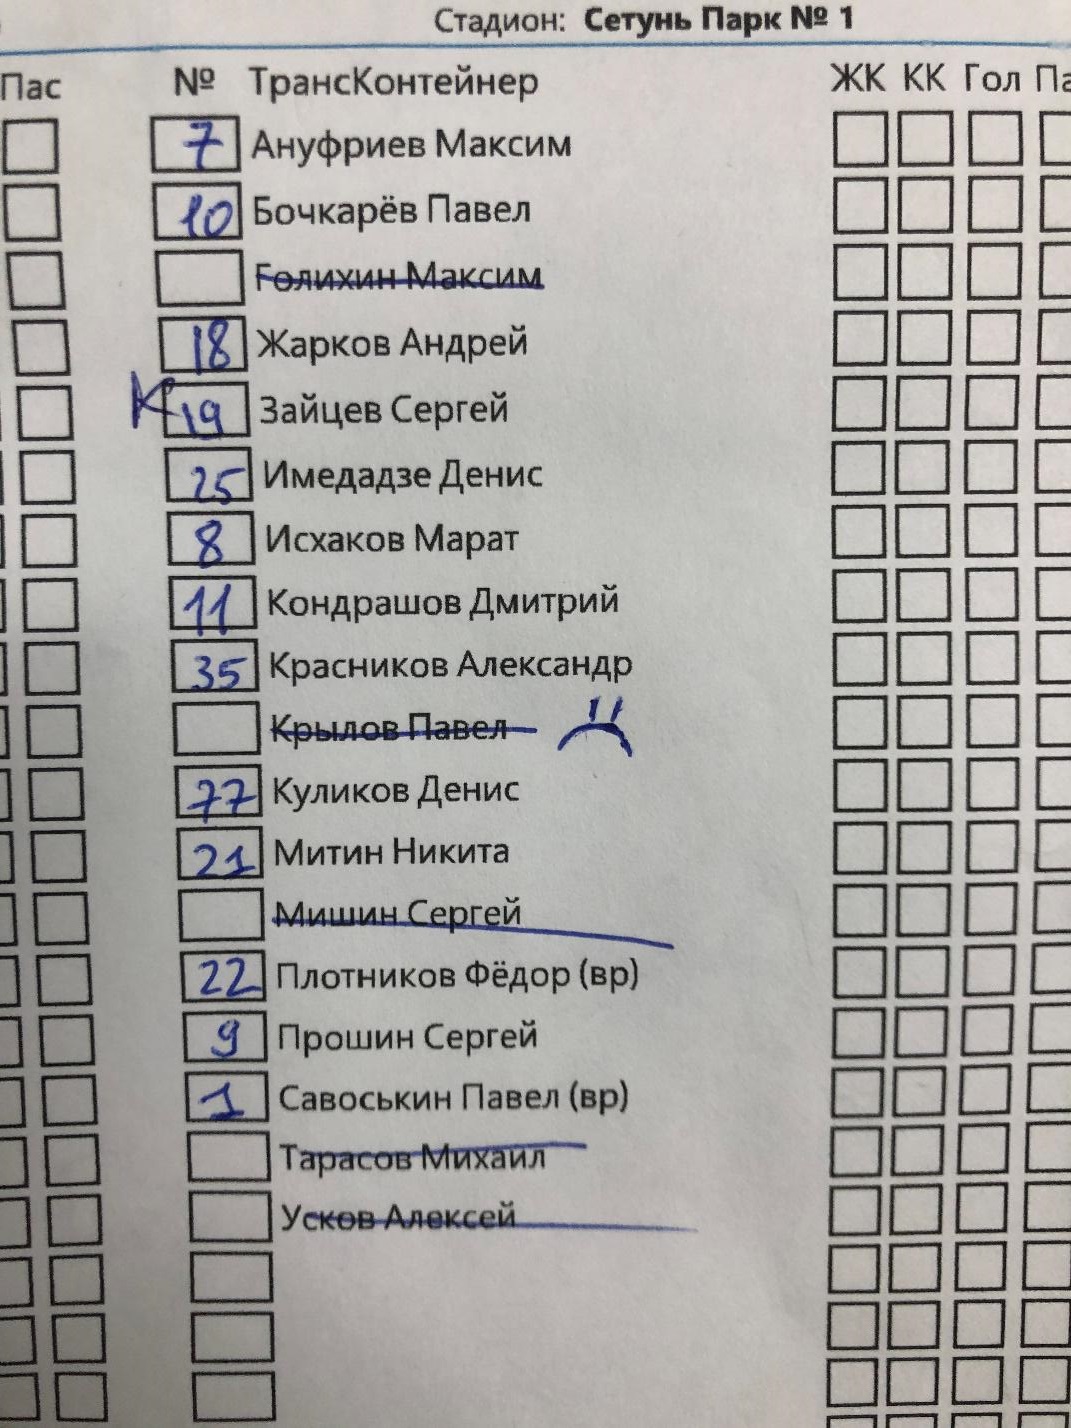 Стадион: Сетунь Парк № 1
Пас № ТрансКонтейнер ЖК КК Гол Па
7 Ануфриев Максим
10 Бочкарёв Павел
Голихин Максим
18 Жарков Андрей
К 19 Зайцев Сергей
25 Имедадзе Денис
8 Исхаков Марат
11 Кондрашов Дмитрий
35 Красников Александр
Крылов Павел
77 Куликов Денис
21 Митин Никита
Мишин Сергей
22 Плотников Фёдор (вр)
9 Прошин Сергей
1 Савоськин Павел (вр)
Тарасов Михаил
Усков Алексей